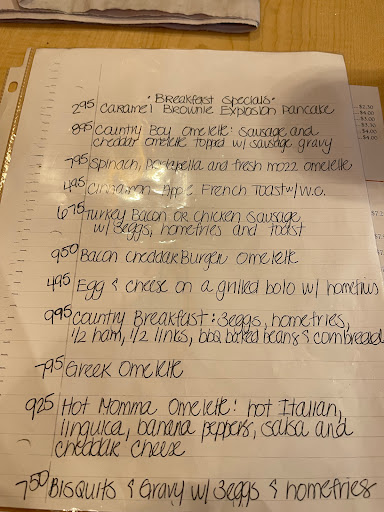 • Breakfast Specials •
2.95 Caramel Brownie Explosion Pancake
8.95 Country Boy Omelette: sausage and
cheddar omelette topped w/ sausage gravy
7.95 Spinach, Portabella and fresh mozz omelette
4.95 Cinnamon Apple French Toast w/ w.c.
6.75 Turkey Bacon OR Chicken Sausage
w/ 3eggs, homefries and toast
9.50 Bacon Cheddar Burger Omelette
4.95 Egg & cheese on a grilled bolo w/ homefries
9.95 Country Breakfast: 3eggs, homefries,
1/2 ham, 1/2 links, bbq baked beans & cornbread
7.95 Greek Omelette
9.25 Hot Momma Omelette: hot Italian,
linguica, banana peppers, salsa and
cheddar cheese
7.50 Bisquits & Gravy w/ 3eggs & homefries
$2.50
$4.00
$3.00
$3.50
$4.00